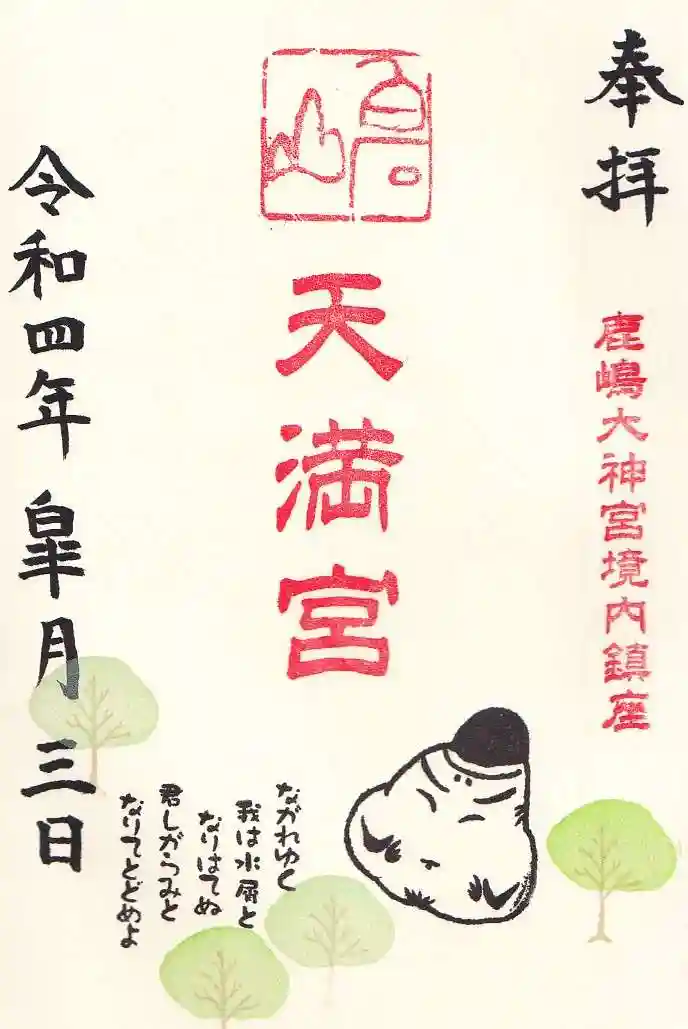 奉拝
鹿嶋大神宮境内鎮座
天満宮
ながれゆく
我は水屑と
なりはてぬ
君しがらみと
なりてとどめよ
令和四年 皐月 三日